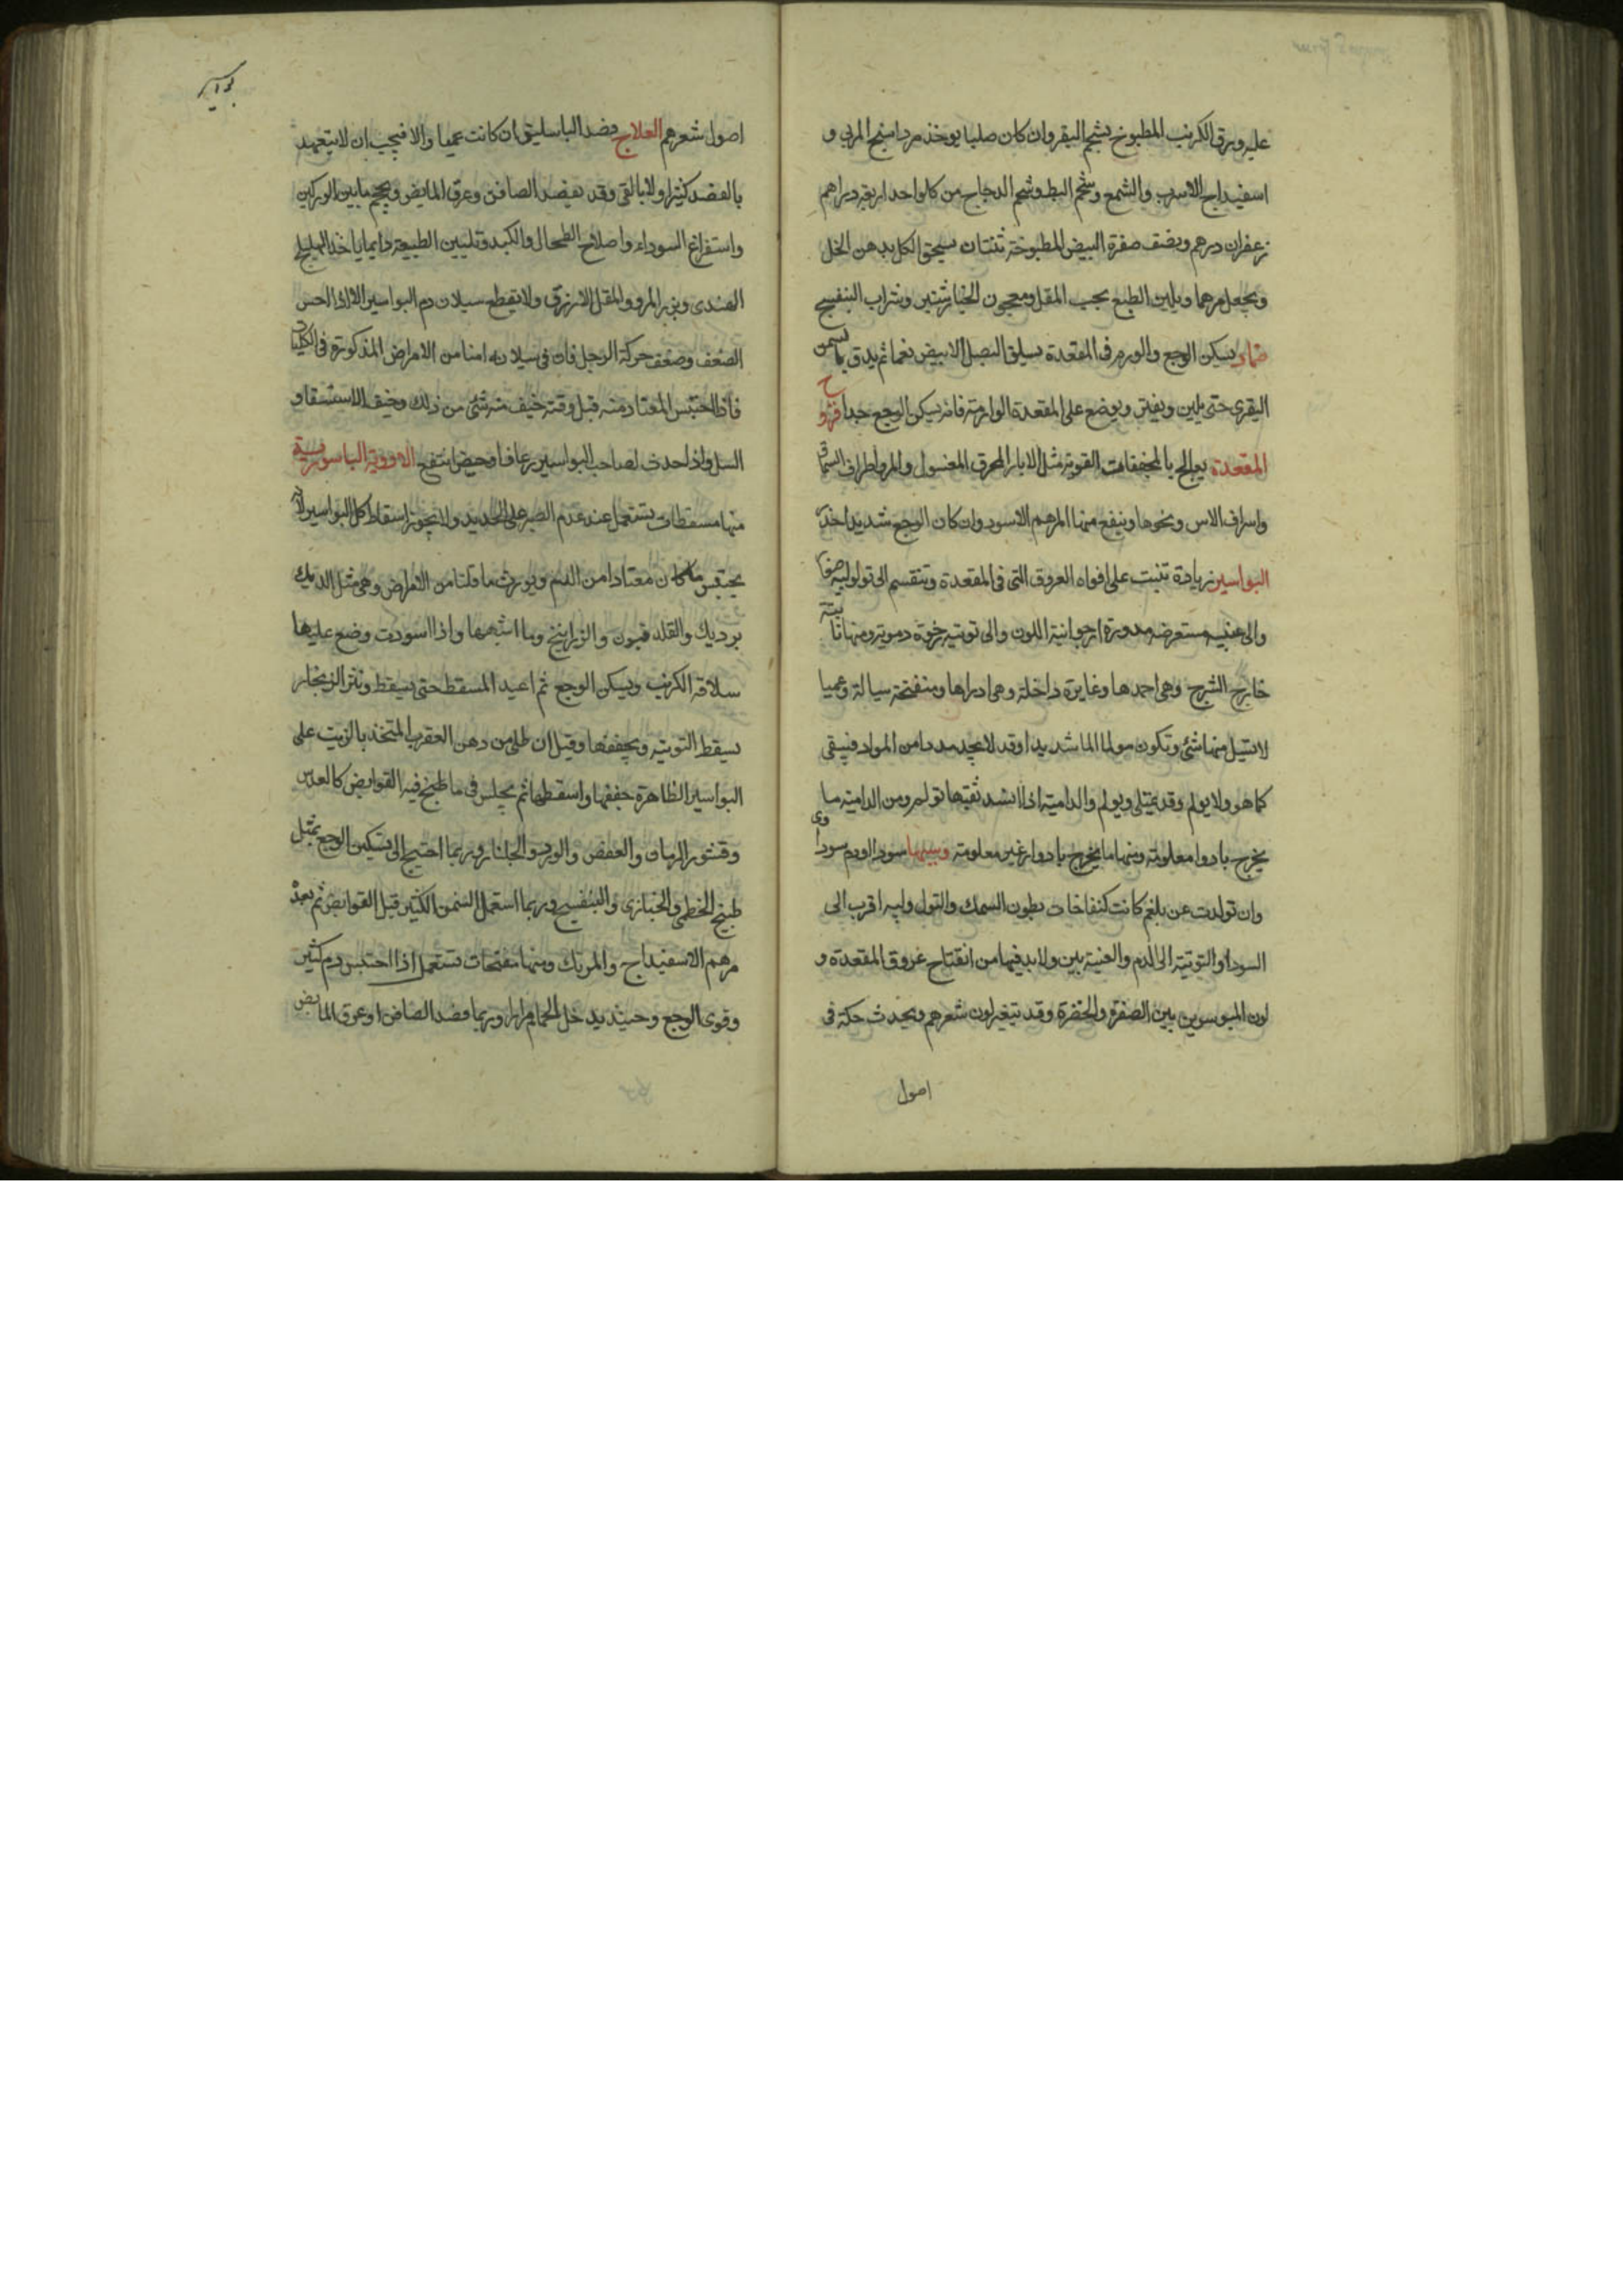 عليه ورق الكرنب المطبوخ بشحم البقر وان كان صلبا يوخذ مرداسنج المربى و
اسفيداج الاسرب والشمع وشحم البط وشحم الدجاج من كل واحد اربعة دراهم
زعفران درهم ونصف صفرة البيض المطبوخة ثنتان يسحق الكل بدهن الخل
ويجعل مرهما ويلين الطبع بحب المقل ومعجون الخيارشنبر وشراب البنفسج
ضماد يسكن الوجع والورم فى المقعدة يسلق البصل الابيض نعما ثم يدق بالسمن
البقرى حتى يلين ويفتر ويوضع على المقعدة الوارمة فانه يسكن الوجع جدا قروح
المقعدة يعالج بالمجففات القوية مثل الابار المحرق المغسول والمر واطراف السماق
واسراف الاس ونحوها وينفع منها المرهم الاسود وان كان الوجع شديدا خدر
البواسير زيادة تنبت على افواه العروق التى فى المقعدة وتنقسم الى ثولولية صغار
والى عنبيه مستعرضه مدورة ارجوانية اللون والى توتيه رخوة دموية ومنها ناتية
خارج الشرج وهى احمدها وغايرة داخلة وهى ارداها ومنفتحة سيالة وعميا
لا يسيل منها شئ وتكون مولما الما شديدا وقد لا يجد مددا من المواد فيبقى
كما هو ولا يولم وقد يمتلى ويولم والدامية اذا انسد ثقبها تولم ومن الدامية ما
يخرج بادوار معلومة ومنها ما يخرج بادوار غير معلومة وسببها سودا او دم سوداوى
وان تولدت عن بلغم كانت كنفاخات بطون السمك والثولولية اقرب الى
السودا والتوتية الى الدم والعنبية بين ولا بد فيها من انفتاح عروق المقعدة و
لون المبوسرين بين الصفرة والخضرة وقد يتغير لون شعرهم ويحدث حكة فى
اصول
بواسير
اصول شعرهم العلاج فصد الباسليق ان كانت عميا والا فيجب ان لا يتعهد
بالفصد كثيرا ولا بالقى وقد يفصد الصافن وعرق المابض ويحجم ما بين الوركين
واستفراغ السوداء واصلاح الطحال والكبد وتليين الطبيعة دايما ياخذ الهليلج
الهندى وبزر المرو والمقل الازرق ولا يقطع سيلان دم البواسير الا اذا احس
الضعف وضعف حركة الرجل فان فى سيلانه امنا من الامراض المذكورة فى الكليات
فاذا احتبس المعتاد منه قبل وقته خيف منه شئ من ذلك وخيف الاستسقا و
السل واذا حدث لصاحب البواسير رعاف او حيض انتفع الادوية الباسورية
منها مسقطات تستعمل عند عدم الصبر على الحديد ولا يجوز اسقاط كل البواسير لانه
يحتبس ما كان معتادا من الدم ويورث ما قلنا من الامراض وهى مثل الديك
برديك والقلدفيون والزرانيخ وما اشبهها واذا اسودت وضع عليها
سلاقة الكرنب ويسكن الوجع ثم اعيد المسقط حتى يسقط ونثر الزنجار
يسقط التوتيه ويجففها وقيل ان طلى من دهن العقرب المتخذ بالزيت على
البواسير الظاهرة جففها واسقطها ثم يجلس فى ما طبخ فيه القوابض كالعدس
وقشور الرمان والعفص والورد والجلنار وربما احتيج الى تسكين الوجع بمثل
طبيخ الخطمى والخبازى والبنفسج وربما استعمل السمن الكثير قبل القوابض ثم بعده
مرهم الاسفيداج والمرتك ومنها مفتحات تستعمل اذا احتبس دم كثير
وقوى الوجع وحينئذ يدخل الحمام مرارا وربما فصد الصافن او عرق المابض